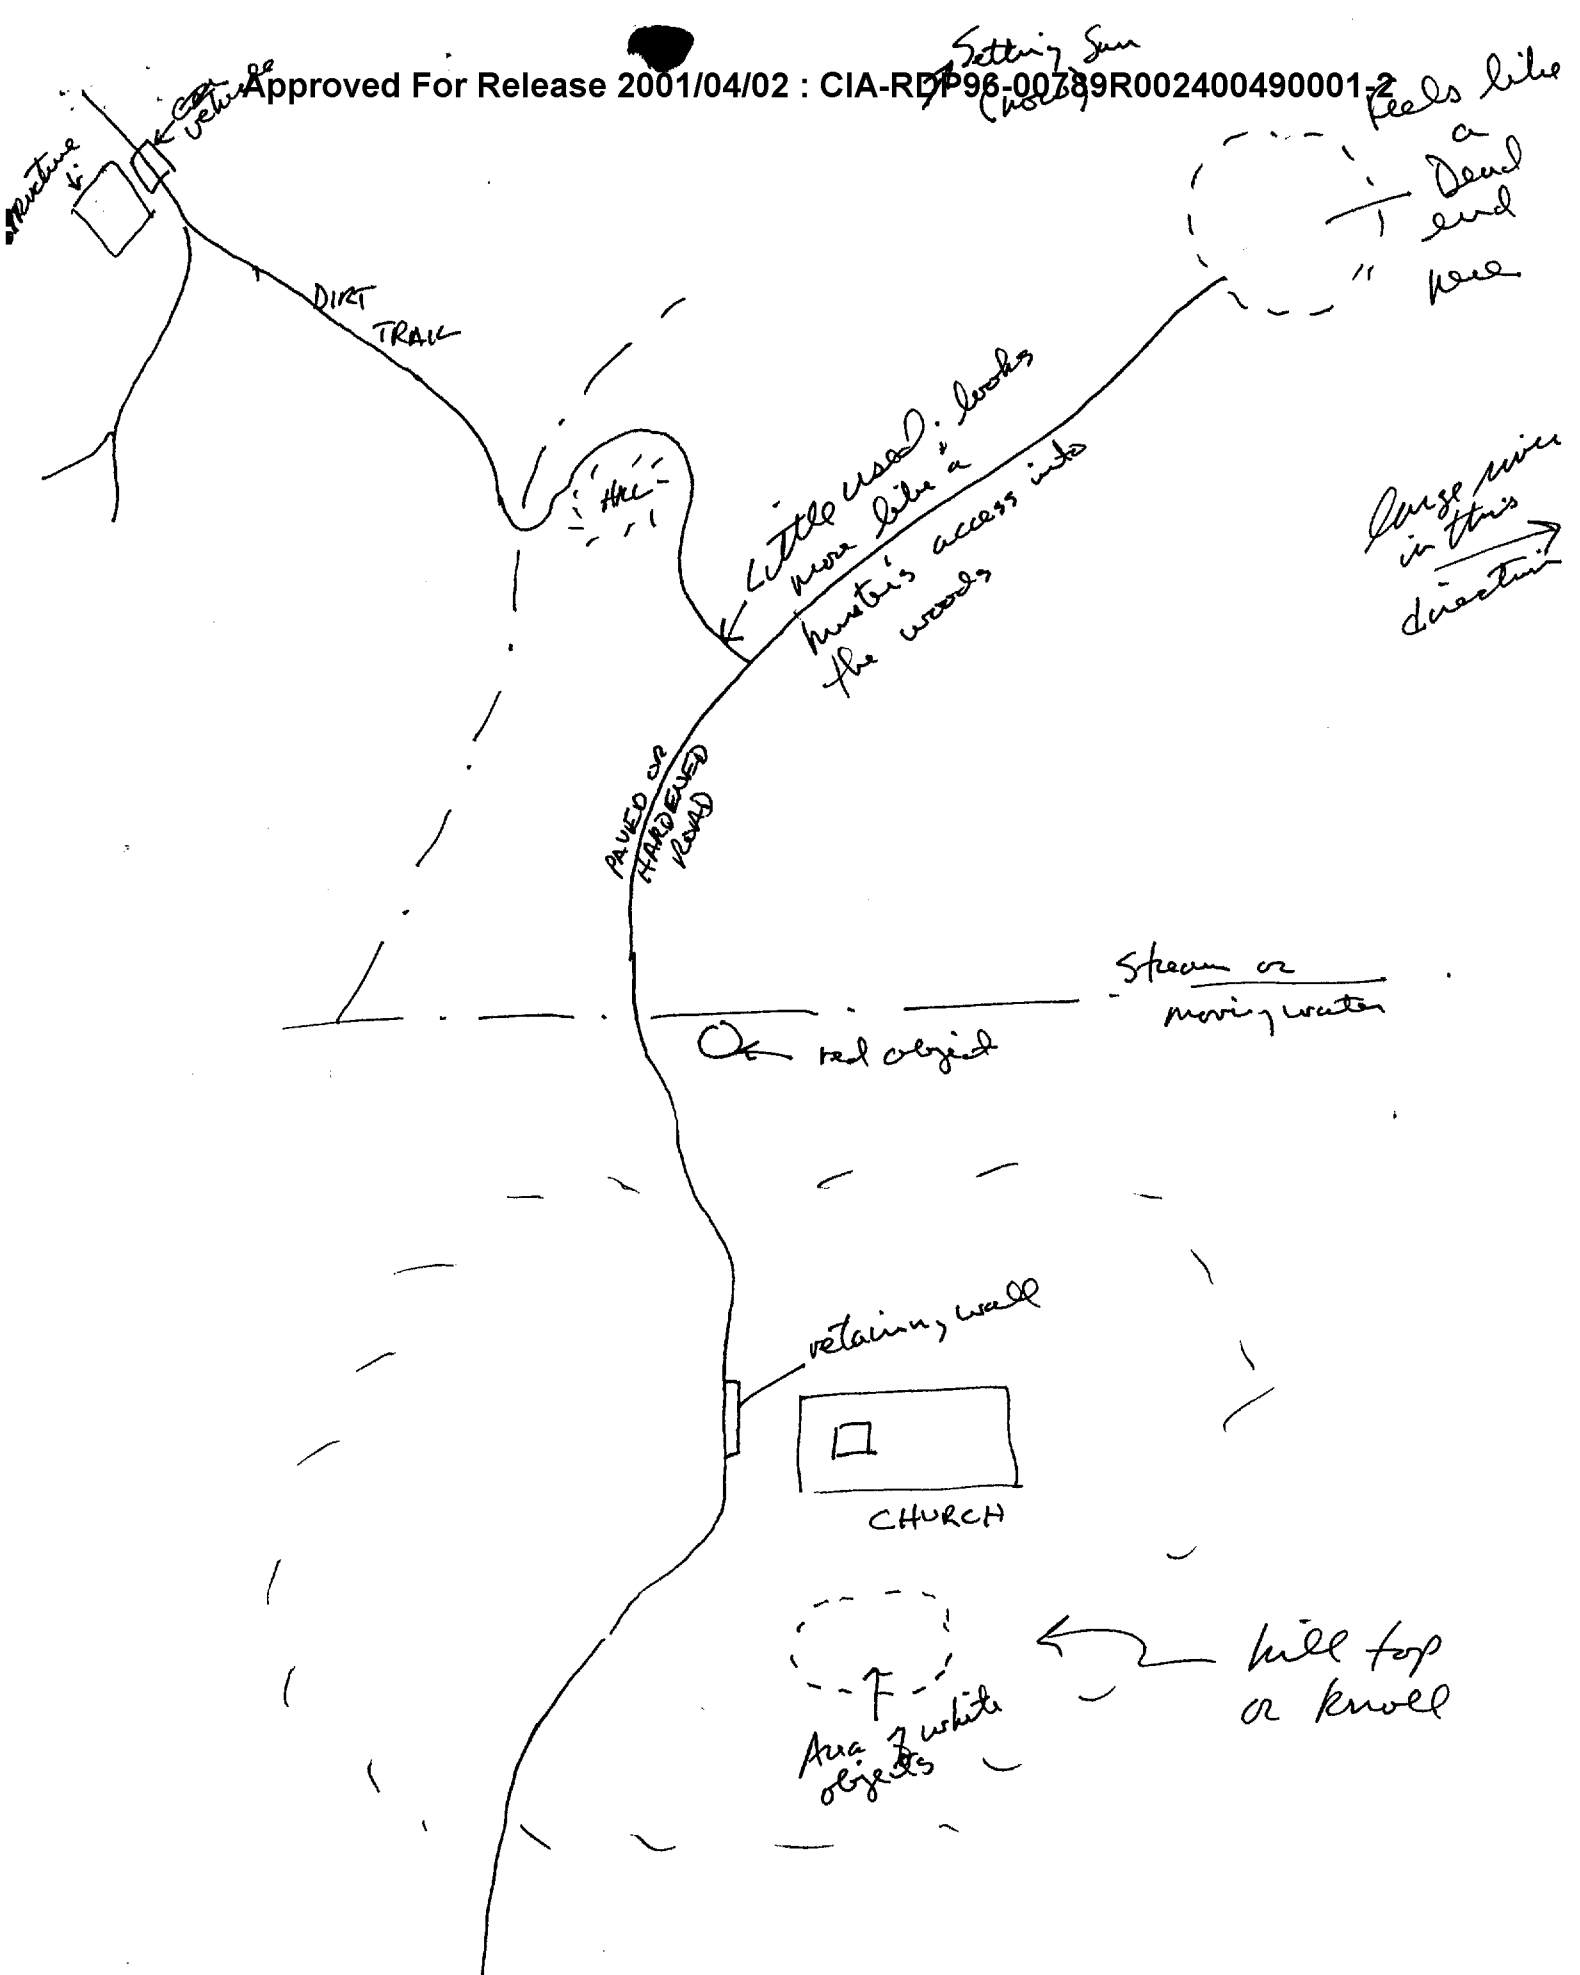 Setting Sun
Approved For Release 2001/04/02 : CIA-RDP96-00789R002400490001-2
vehicle
structure
Feels like
a
Dead
end
here
DIRT
TRAIL
HILL
Little used; looks
more like a
hunter's access into
the woods
large river
in this
direction
PAVED OR
HARDENED
ROAD
Stream or
moving water
red object
retaining wall
CHURCH
hill top
or knoll
Area of white
objects